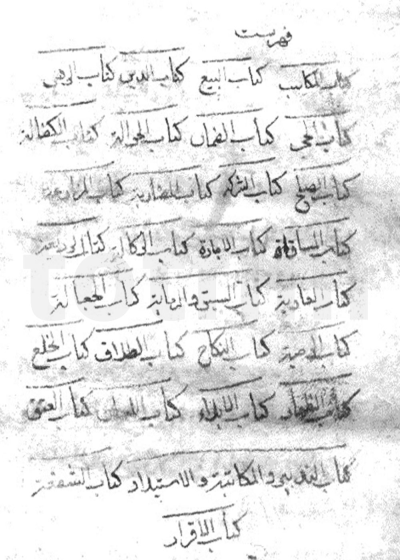 فهرست
كتاب المكاسب كتاب البيع كتاب الدين كتاب الرهن
كتاب الحجر كتاب الضمان كتاب الحوالة كتاب الكفالة
كتاب الصلح كتاب الشركة كتاب المضاربة كتاب المزارعة
كتاب المساقاة كتاب الاجارة كتاب الوكالة كتاب الوديعة
كتاب العارية كتاب السبق والرماية كتاب الجعالة
كتاب الوصية كتاب النكاح كتاب الطلاق كتاب الخلع
كتاب الظهار كتاب الايلاء كتاب اللعان كتاب العتق
كتاب التدبير والمكاتبة والاستيلاد كتاب الشفعة
كتاب الاقرار